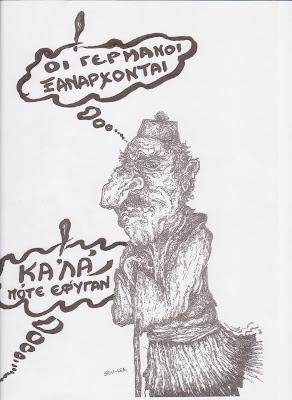 ΟΙ ΓΕΡΜΑΝΟΙ
ΞΑΝΑΡΧΟΝΤΑΙ
ΚΑΛΆ
ΠΌΤΕ ΕΦΥΓΑΝ